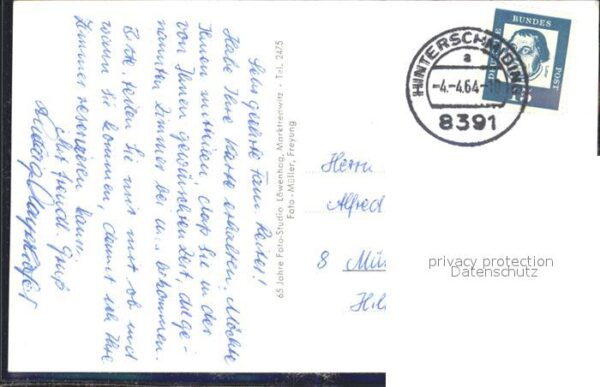 Sehr geehrte Fam. Keller!
Habe Ihre Karte erhalten. Möchte
Ihnen mitteilen daß Sie in der
von Ihnen gewünschten Zeit, die ge-
nannten Zimmer bei uns bekommen.
Bitte, teilen Sie mir mit ob und
wann Sie kommen, damit ich Ihre
Zimmer reservieren kann.
Mit freundl. Gruß
65 Jahre Foto-Studio Löwenhag, Marktredwitz · Tel. 2475
Foto-Müller, Freyung
HINTERSCHMIDING
a
-4.-4.64-
8391
DEUTSCHE
BUNDES
POST
Herrn
Alfred
8 Mün
privacy protection
Datenschutz